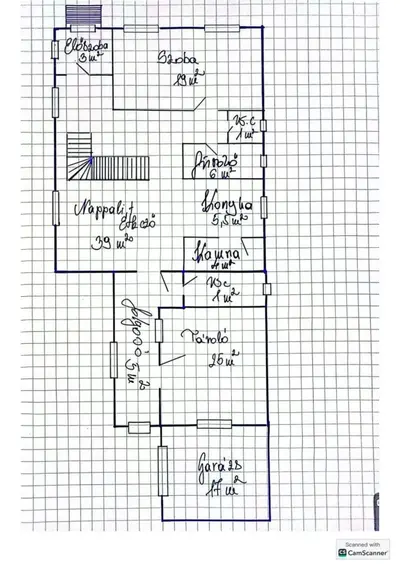 Előszoba
3 m²
Szoba
19 m²
W.C
1 m²
Fürdő
6 m²
Nappali +
Étkező
39 m²
Konyha
5,5 m²
Kamra
4 m²
Wc
1 m²
folyosó
5 m²
Tároló
25 m²
Garázs
17 m²
Scanned with
CamScanner